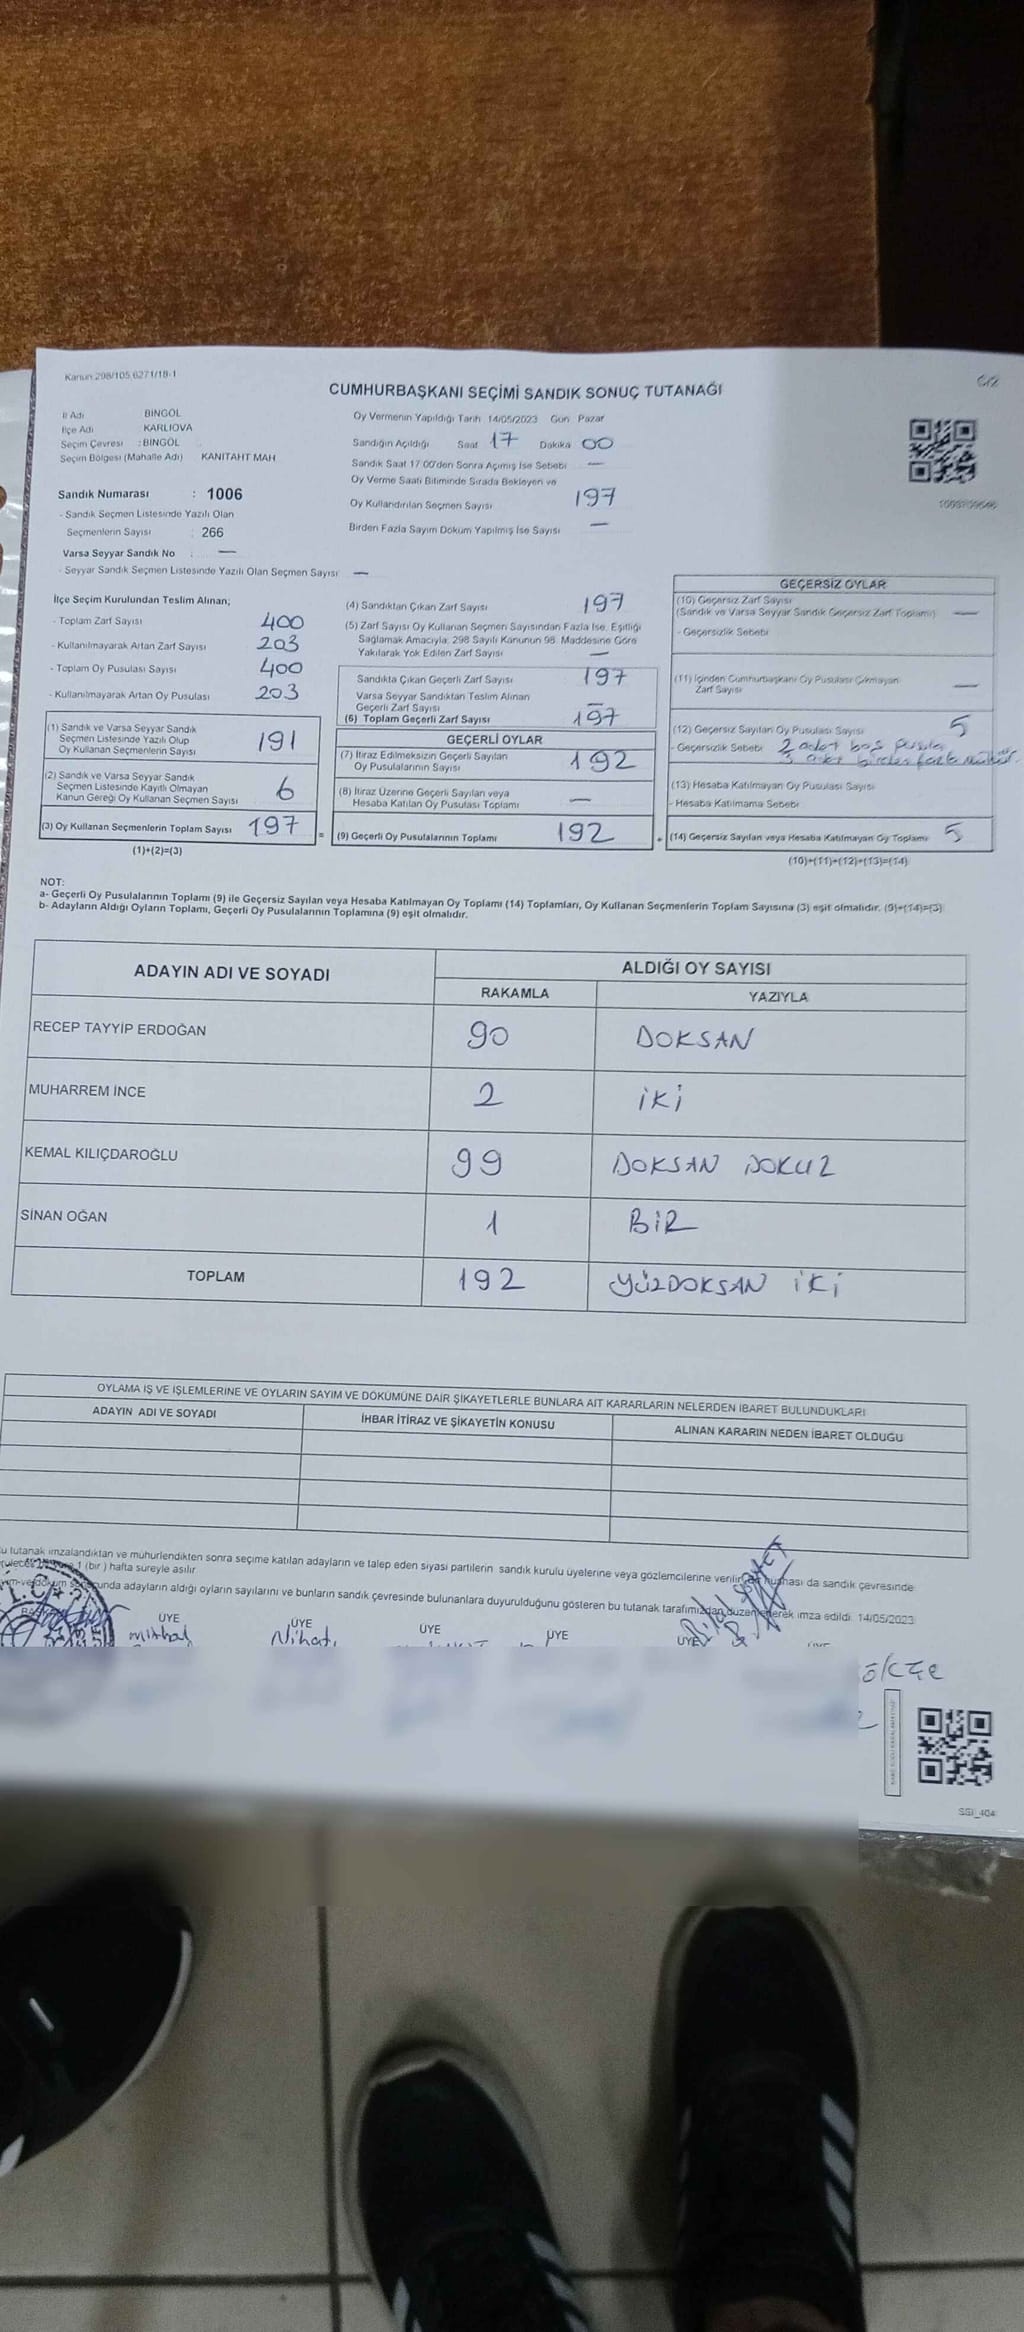 Kanun 298/105,6271/18-1
CUMHURBAŞKANI SEÇİMİ SANDIK SONUÇ TUTANAĞI
İl Adı BİNGÖL
İlçe Adı KARLIOVA
Seçim Çevresi : BİNGÖL
Seçim Bölgesi (Mahalle Adı) KANİTAHT MAH.
Sandık Numarası : 1006
- Sandık Seçmen Listesinde Yazılı Olan
Seçmenlerin Sayısı : 266
Varsa Seyyar Sandık No : —
- Seyyar Sandık Seçmen Listesinde Yazılı Olan Seçmen Sayısı —
Oy Vermenin Yapıldığı Tarih 14/05/2023 Gün Pazar
Sandığın Açıldığı Saat 17 Dakika 00
Sandık Saat 17:00'den Sonra Açımış İse Sebebi —
Oy Verme Saati Bitiminde Sırada Bekleyen ve
Oy Kullandırılan Seçmen Sayısı 197
Birden Fazla Sayım Döküm Yapılmış İse Sayısı —
İlçe Seçim Kurulundan Teslim Alınan;
- Toplam Zarf Sayısı 400
- Kullanılmayarak Artan Zarf Sayısı 203
- Toplam Oy Pusulası Sayısı 400
- Kullanılmayarak Artan Oy Pusulası 203
(1) Sandık ve Varsa Seyyar Sandık
Seçmen Listesinde Yazılı Olup
Oy Kullanan Seçmenlerin Sayısı 191
(2) Sandık ve Varsa Seyyar Sandık
Seçmen Listesinde Kayıtlı Olmayan
Kanun Gereği Oy Kullanan Seçmen Sayısı 6
(3) Oy Kullanan Seçmenlerin Toplam Sayısı 197 =
(1)+(2)=(3)
(4) Sandıktan Çıkan Zarf Sayısı 197
(5) Zarf Sayısı Oy Kullanan Seçmen Sayısından Fazla İse, Eşitliği
Sağlamak Amacıyla; 298 Sayılı Kanunun 98. Maddesine Göre
Yakılarak Yok Edilen Zarf Sayısı —
Sandıkta Çıkan Geçerli Zarf Sayısı 197
Varsa Seyyar Sandıktan Teslim Alınan
Geçerli Zarf Sayısı —
(6) Toplam Geçerli Zarf Sayısı 197
GEÇERLİ OYLAR
(7) İtiraz Edilmeksizin Geçerli Sayılan
Oy Pusulalarının Sayısı 192
(8) İtiraz Üzerine Geçerli Sayılan veya
Hesaba Katılan Oy Pusulası Toplamı —
(9) Geçerli Oy Pusulalarının Toplamı 192 +
GEÇERSİZ OYLAR
(10) Geçersiz Zarf Sayısı
(Sandık ve Varsa Seyyar Sandık Geçersiz Zarf Toplamı) —
- Geçersizlik Sebebi
(11) İçinden Cumhurbaşkanı Oy Pusulası Çıkmayan
Zarf Sayısı —
(12) Geçersiz Sayılan Oy Pusulası Sayısı 5
- Geçersizlik Sebebi 2 adet boş pusula
3 adet birden fazla mühür.
(13) Hesaba Katılmayan Oy Pusulası Sayısı
- Hesaba Katılmama Sebebi
(14) Geçersiz Sayılan veya Hesaba Katılmayan Oy Toplamı 5
(10)+(11)+(12)+(13)=(14)
NOT:
a- Geçerli Oy Pusulalarının Toplamı (9) ile Geçersiz Sayılan veya Hesaba Katılmayan Oy Toplamı (14) Toplamları, Oy Kullanan Seçmenlerin Toplam Sayısına (3) eşit olmalıdır. (9)+(14)=(3)
b- Adayların Aldığı Oyların Toplamı, Geçerli Oy Pusulalarının Toplamına (9) eşit olmalıdır.
ADAYIN ADI VE SOYADI ALDIĞI OY SAYISI
RAKAMLA YAZIYLA
RECEP TAYYİP ERDOĞAN 90 DOKSAN
MUHARREM İNCE 2 İKİ
KEMAL KILIÇDAROĞLU 99 DOKSAN DOKUZ
SİNAN OĞAN 1 BİR
TOPLAM 192 YÜZDOKSAN İKİ
OYLAMA İŞ VE İŞLEMLERİNE VE OYLARIN SAYIM VE DÖKÜMÜNE DAİR ŞİKAYETLERLE BUNLARA AİT KARARLARIN NELERDEN İBARET BULUNDUKLARI
ADAYIN ADI VE SOYADI İHBAR İTİRAZ VE ŞİKAYETİN KONUSU ALINAN KARARIN NEDEN İBARET OLDUĞU
u tutanak imzalandıktan ve mühürlendikten sonra seçime katılan adayların ve talep eden siyasi partilerin sandık kurulu üyelerine veya gözlemcilerine verilir, bir nüshası da sandık çevresinde
1 (bir) hafta süreyle asılır
adayların aldığı oyların sayılarını ve bunların sandık çevresinde bulunanlara duyurulduğunu gösteren bu tutanak tarafımızdan düzenlenerek imza edildi. 14/05/2023
ÜYE ÜYE ÜYE ÜYE ÜYE
Nihat
SGİ_404